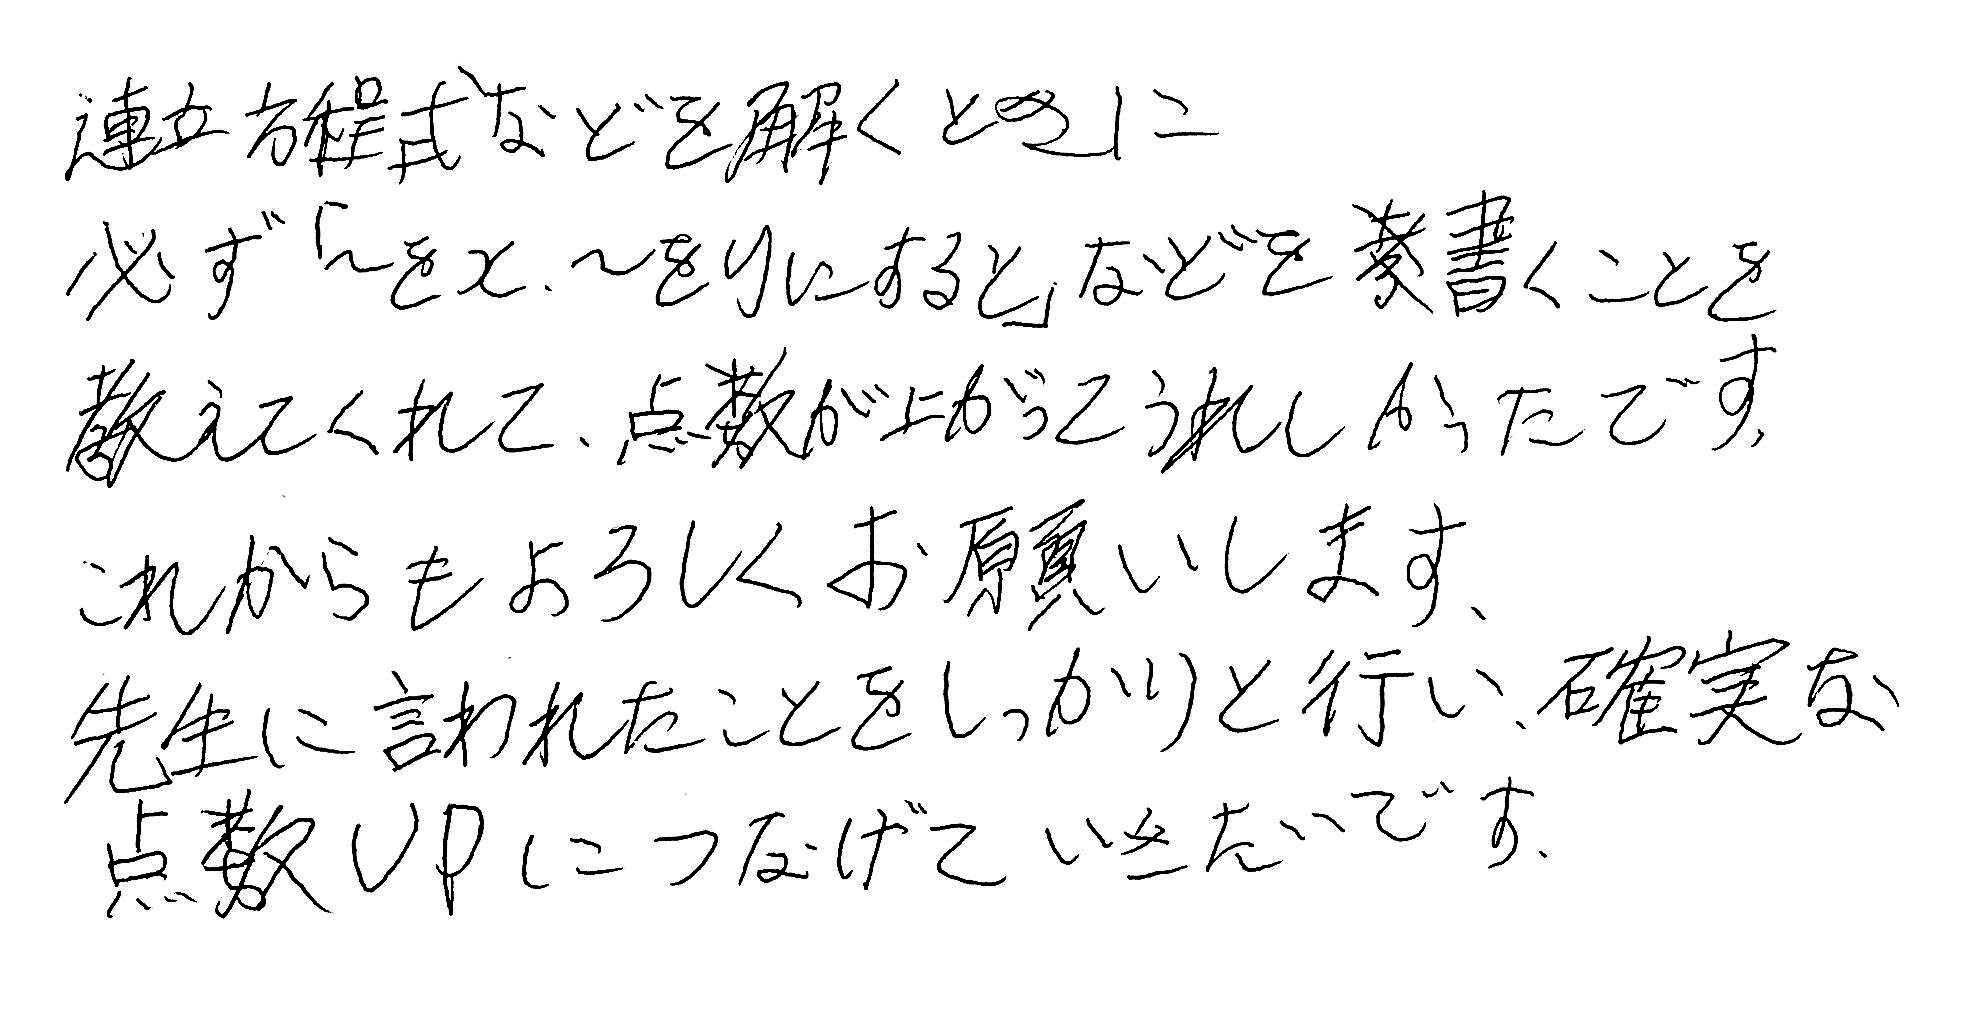 連立方程式などを解くときに
必ず「~をx、~をyにすると」などを書くことを
教えてくれて、点数が上がってうれしかったです。
これからもよろしくお願いします、
先生に言われたことをしっかりと行い、確実な
点数UPにつなげていきたいです。